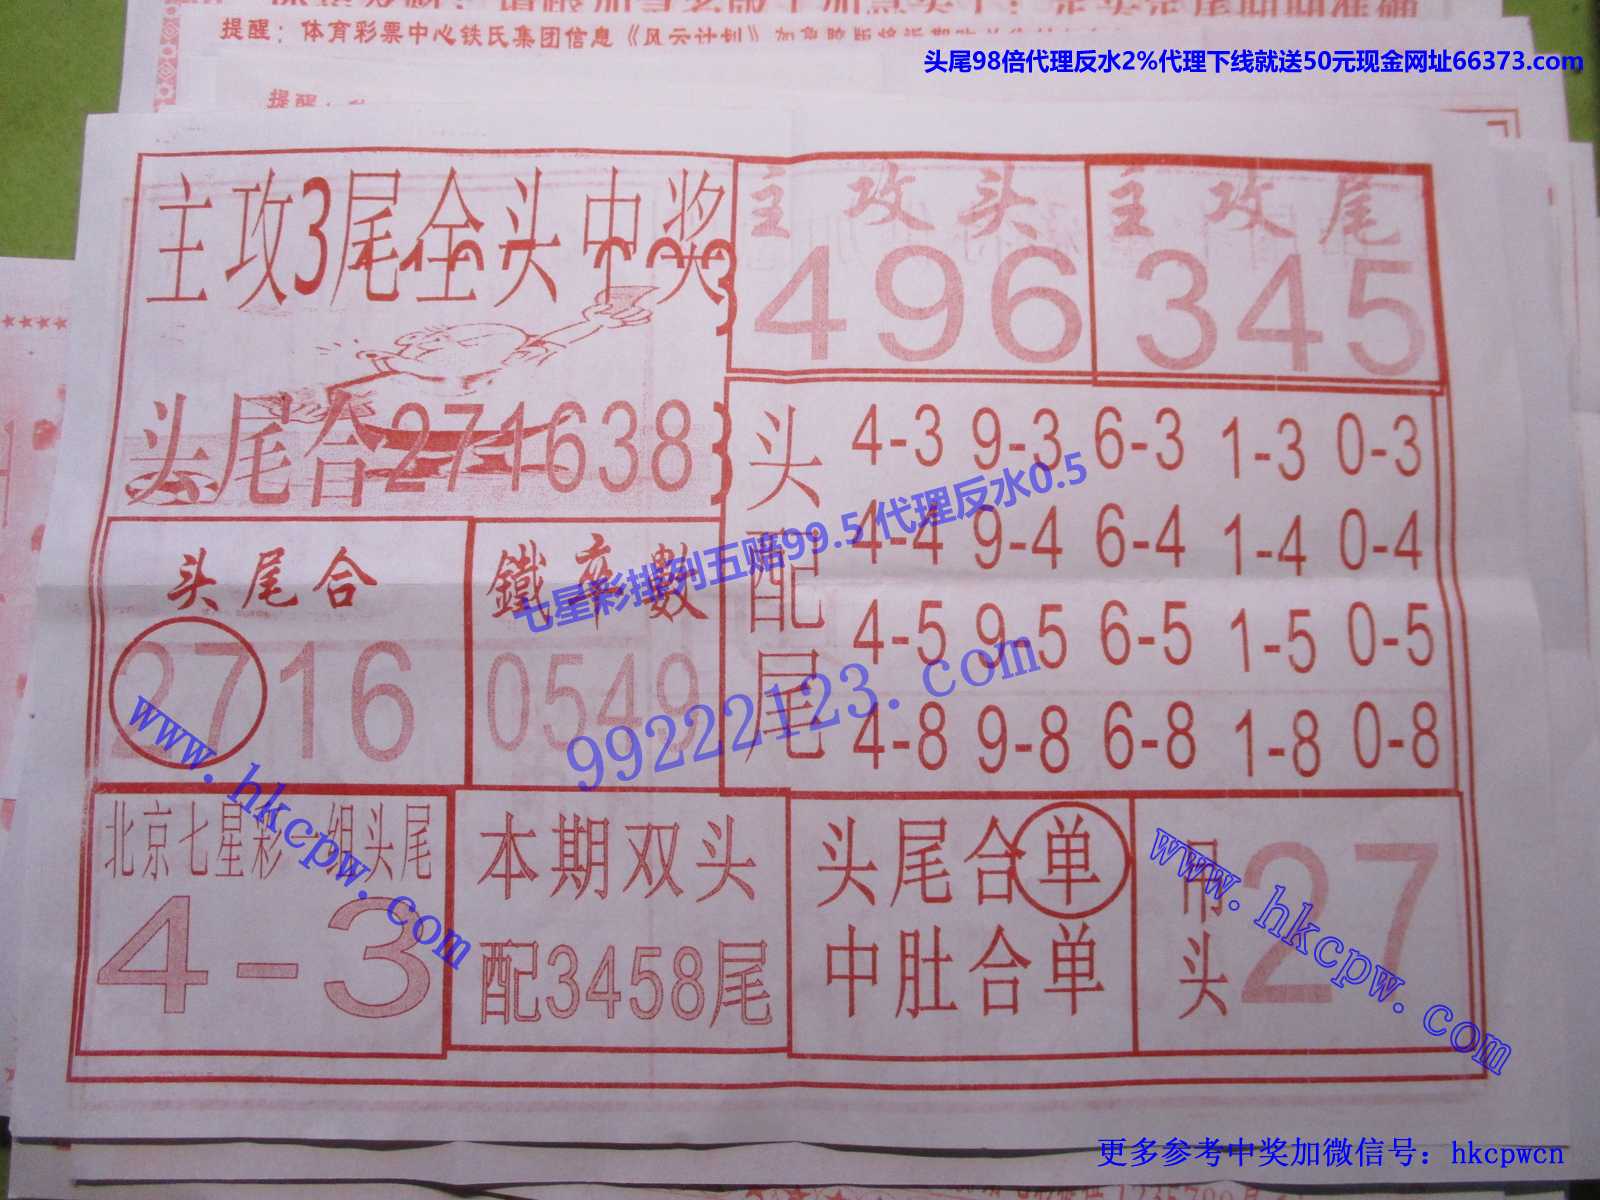 提醒：体育彩票中心铁氏集团信息《风云计划》
头尾98倍代理反水2%代理下线就送50元现金网址66373.com
提醒：
主攻3尾全头中奖
主攻头
496
主攻尾
345
头尾合271638
头配尾
4-3 9-3 6-3 1-3 0-3
4-4 9-4 6-4 1-4 0-4
4-5 9-5 6-5 1-5 0-5
4-8 9-8 6-8 1-8 0-8
七星彩排列五赔99.5 代理反水0.5
99222123.com
头尾合
2716
鐵卒數
0549
www.hkcpw.com
北京七星彩一组头尾
4-3
本期双头
配3458尾
头尾合单
中肚合单
吊头
27
www.hkcpw.com
更多参考中奖加微信号：hkcpwcn